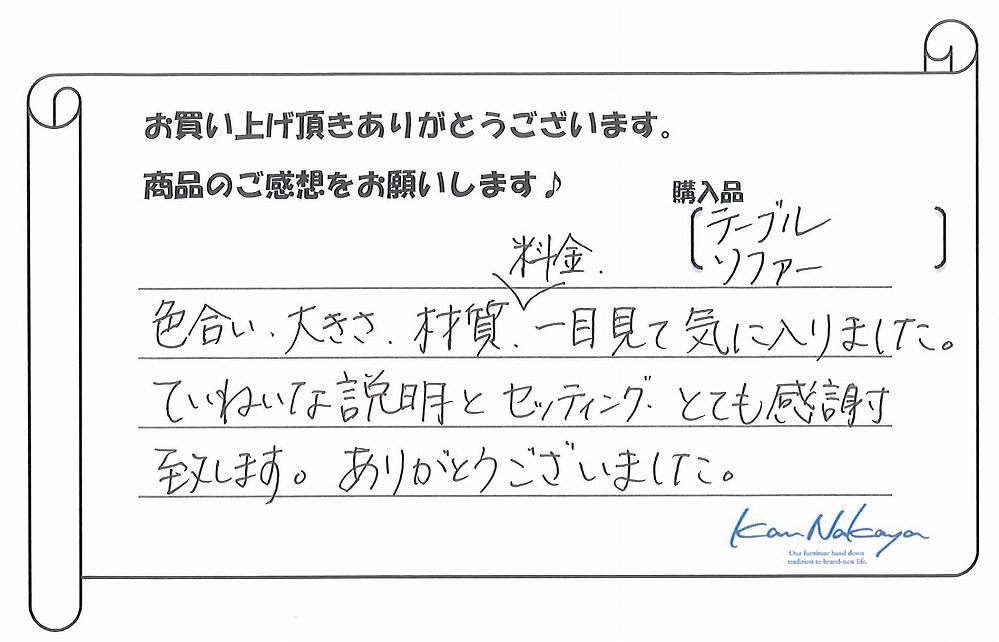 お買い上げ頂きありがとうございます。
商品のご感想をお願いします♪
購入品
テーブル
ソファー
料金、
色合い、大きさ、材質、一目見て気に入りました。
ていねいな説明とセッティング、とても感謝
致します。ありがとうございました。
Kan Nakaya
Our furniture hand down
tradition to brand-new life.